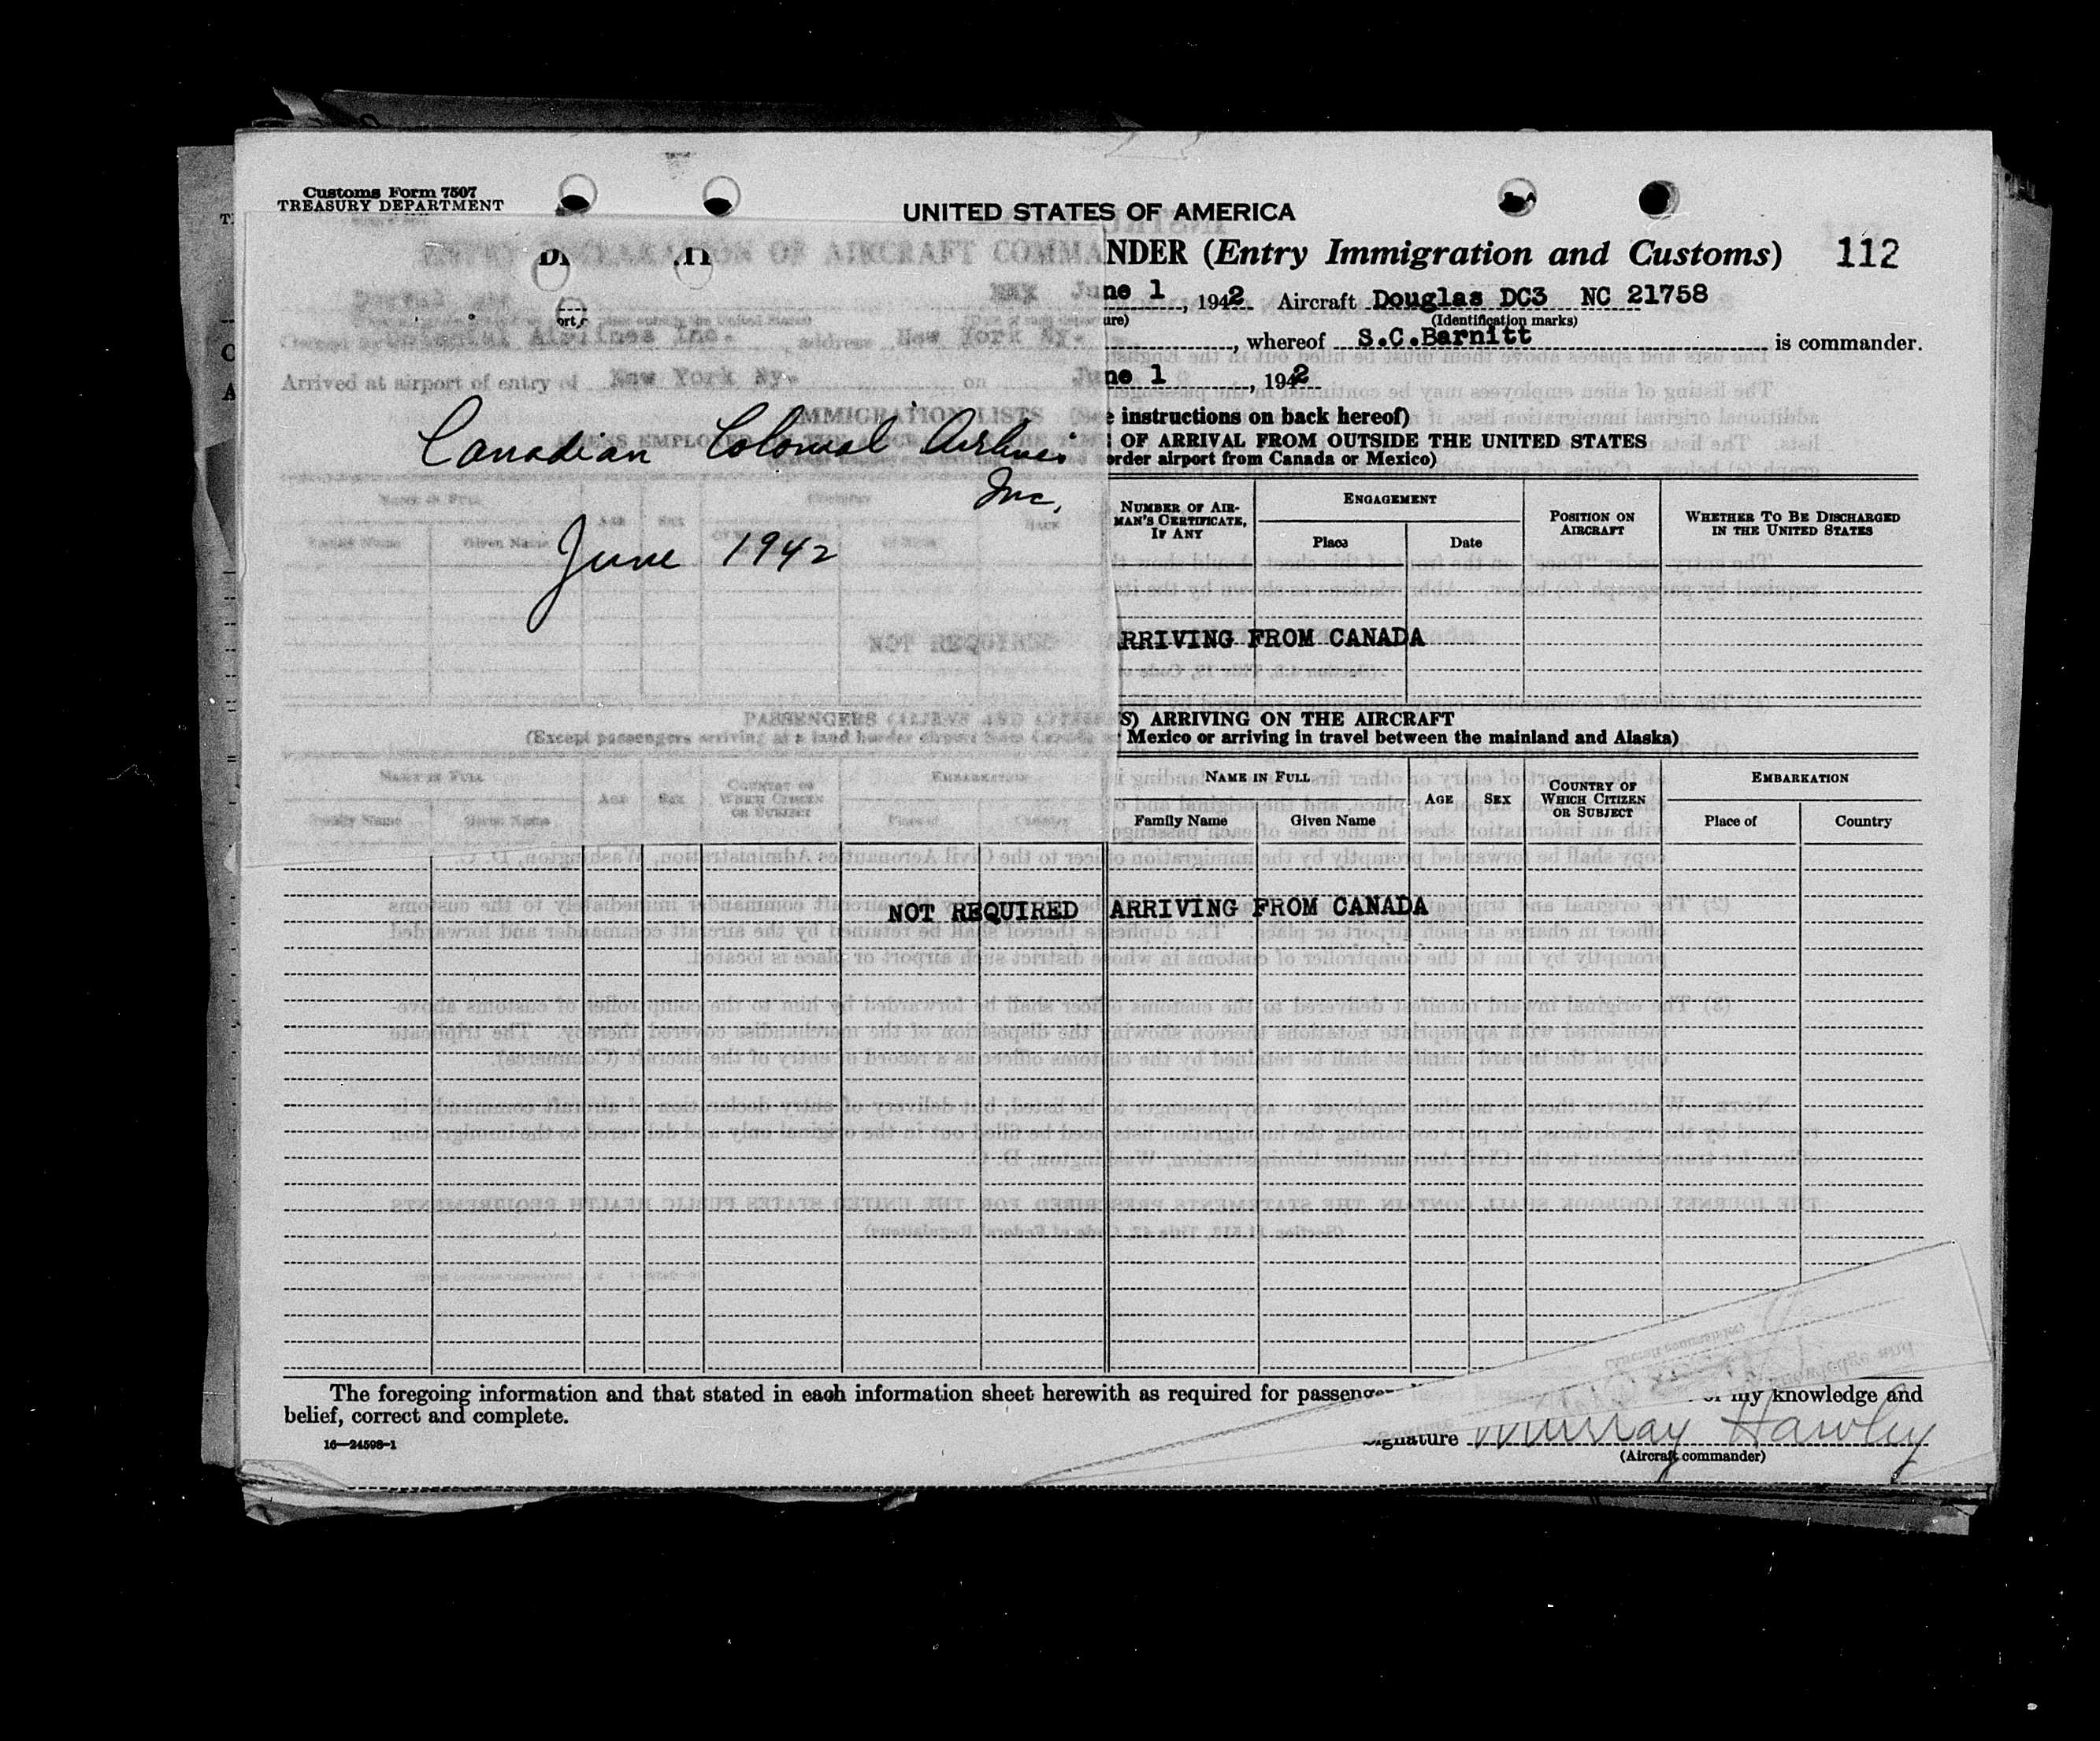 Customs Form 7507
TREASURY DEPARTMENT
UNITED STATES OF AMERICA
ENTRY DECLARATION OF AIRCRAFT COMMANDER (Entry Immigration and Customs) 112
June 1, 1942 Aircraft Douglas DC3 NC 21758
(Identification marks)
Colonial Airlines Inc., address New York Ny., whereof S.C.Barnitt is commander.
Arrived at airport of entry of New York Ny. on June 1, 1942
Canadian Colonial Airlines
Inc.
June 1942
IMMIGRATION LISTS (See instructions on back hereof)
OF ARRIVAL FROM OUTSIDE THE UNITED STATES
border airport from Canada or Mexico)
NAME IN FULL
AGE SEX
Family Name Given Name
NUMBER OF AIRMAN'S CERTIFICATE, IF ANY
ENGAGEMENT
Place Date
POSITION ON AIRCRAFT
WHETHER TO BE DISCHARGED IN THE UNITED STATES
NOT REQUIRED ARRIVING FROM CANADA
PASSENGERS (ALIENS AND CITIZENS) ARRIVING ON THE AIRCRAFT
(Except passengers arriving at a land border airport from Canada or Mexico or arriving in travel between the mainland and Alaska)
NAME IN FULL AGE SEX COUNTRY OF WHICH CITIZEN OR SUBJECT EMBARKATION NAME IN FULL AGE SEX COUNTRY OF WHICH CITIZEN OR SUBJECT EMBARKATION
Family Name Given Name Place of Country Family Name Given Name Place of Country
NOT REQUIRED ARRIVING FROM CANADA
The foregoing information and that stated in each information sheet herewith as required for passenger my knowledge and
belief, correct and complete.
16—24598-1
Signature Murray Hawley
(Aircraft commander)